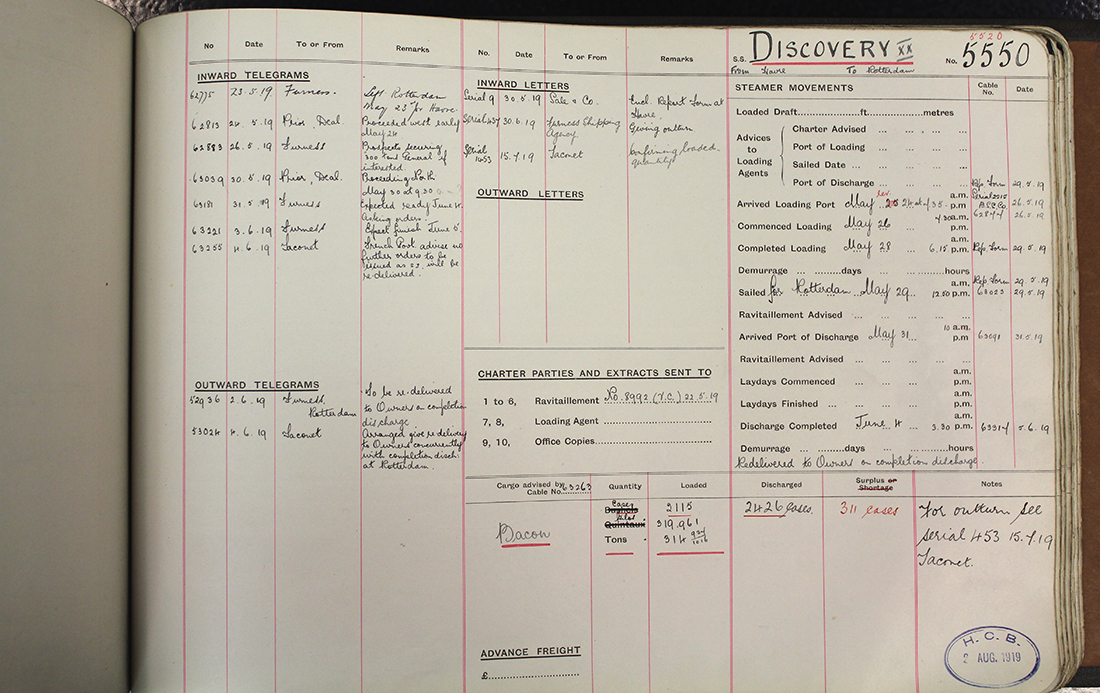 No Date To or From Remarks
INWARD TELEGRAMS
62775 23.5.19 Furness. Left Rotterdam
May 23rd for Havre.
62813 24.5.19 Prior, Deal. Proceeded west early
May 24
62883 26.5.19 Furness Prospects securing
300 tons General if
interested.
63039 30.5.19 Prior, Deal. Proceeding North
May 30 at 9.30
63181 31.5.19 Furness Expected ready June 4.
Asking orders.
63221 3.6.19 Furness Expect finish June 5.
63255 4.6.19 Taconet French Port advise no
further orders to be
issued as s.s. will be
re-delivered.
OUTWARD TELEGRAMS
52936 2.6.19 Furness, Rotterdam To be re-delivered
to Owners on completion
discharge
53024 4.6.19 Taconet Arranged give re delivery
to Owners concurrently
with completion disch.
at Rotterdam.
No. Date To or From Remarks
INWARD LETTERS
Serial 9 30.5.19 Sale & Co. Encl. Report Form at
Havre.
Serial 437 30.6.19 Furness Shipping
Agency Giving outturn
Serial
453 15.7.19 Taconet Confirming loaded
quantity
OUTWARD LETTERS
CHARTER PARTIES AND EXTRACTS SENT TO
1 to 6, Ravitaillement No. 8992 (T.C.) 22.5.19
7, 8, Loading Agent
9, 10, Office Copies
5520
S.S. DISCOVERY XX No. 5550
From Havre To Rotterdam
STEAMER MOVEMENTS Cable No. Date
Loaded Draft ft. metres
Advices to Loading Agents
Charter Advised
Port of Loading
Sailed Date
Port of Discharge
Arrived Loading Port May 24 at 4.35 a.m. p.m Rep. Form 29.5.19
Serial 2515
B.S.C Co. 26.5.19
Commenced Loading May 26 7.30 a.m. p.m. 62844 26.5.19
Completed Loading May 28 6.15 a.m. p.m. Rep. Form 29.5.19
Demurrage days hours
Sailed for Rotterdam May 29 12.50 a.m. p.m. Rep Form 29.5.19
63023 29.5.19
Ravitaillement Advised
Arrived Port of Discharge May 31 10 a.m. p.m 63091 31.5.19
Ravitaillement Advised
Laydays Commenced a.m. p.m.
Laydays Finished a.m. p.m.
Discharge Completed June 4 3.30 a.m. p.m. 63314 5.6.19
Demurrage days hours
Redelivered to Owners on completion discharge.
Cargo advised by Cable No. 63263 Quantity Loaded Discharged Surplus or Shortage Notes
Bacon
Cases Bushels 2115 2426 cases. 311 cases
Kilos Quintaux 319.961
Tons 314 924/1016
For outturn see
serial 453 15.7.19
Taconet.
ADVANCE FREIGHT
£
H.C.B.
2 AUG. 1919